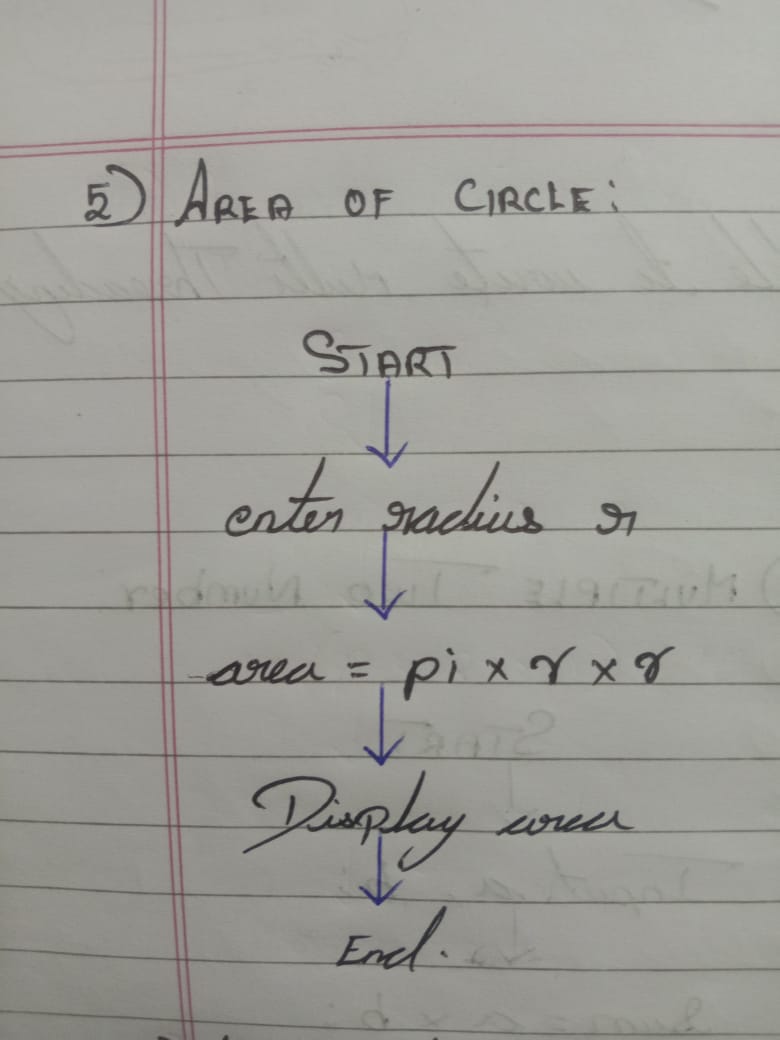 5) AREA OF CIRCLE:
START
enter radius r
area = pi × r × r
Display area
End.